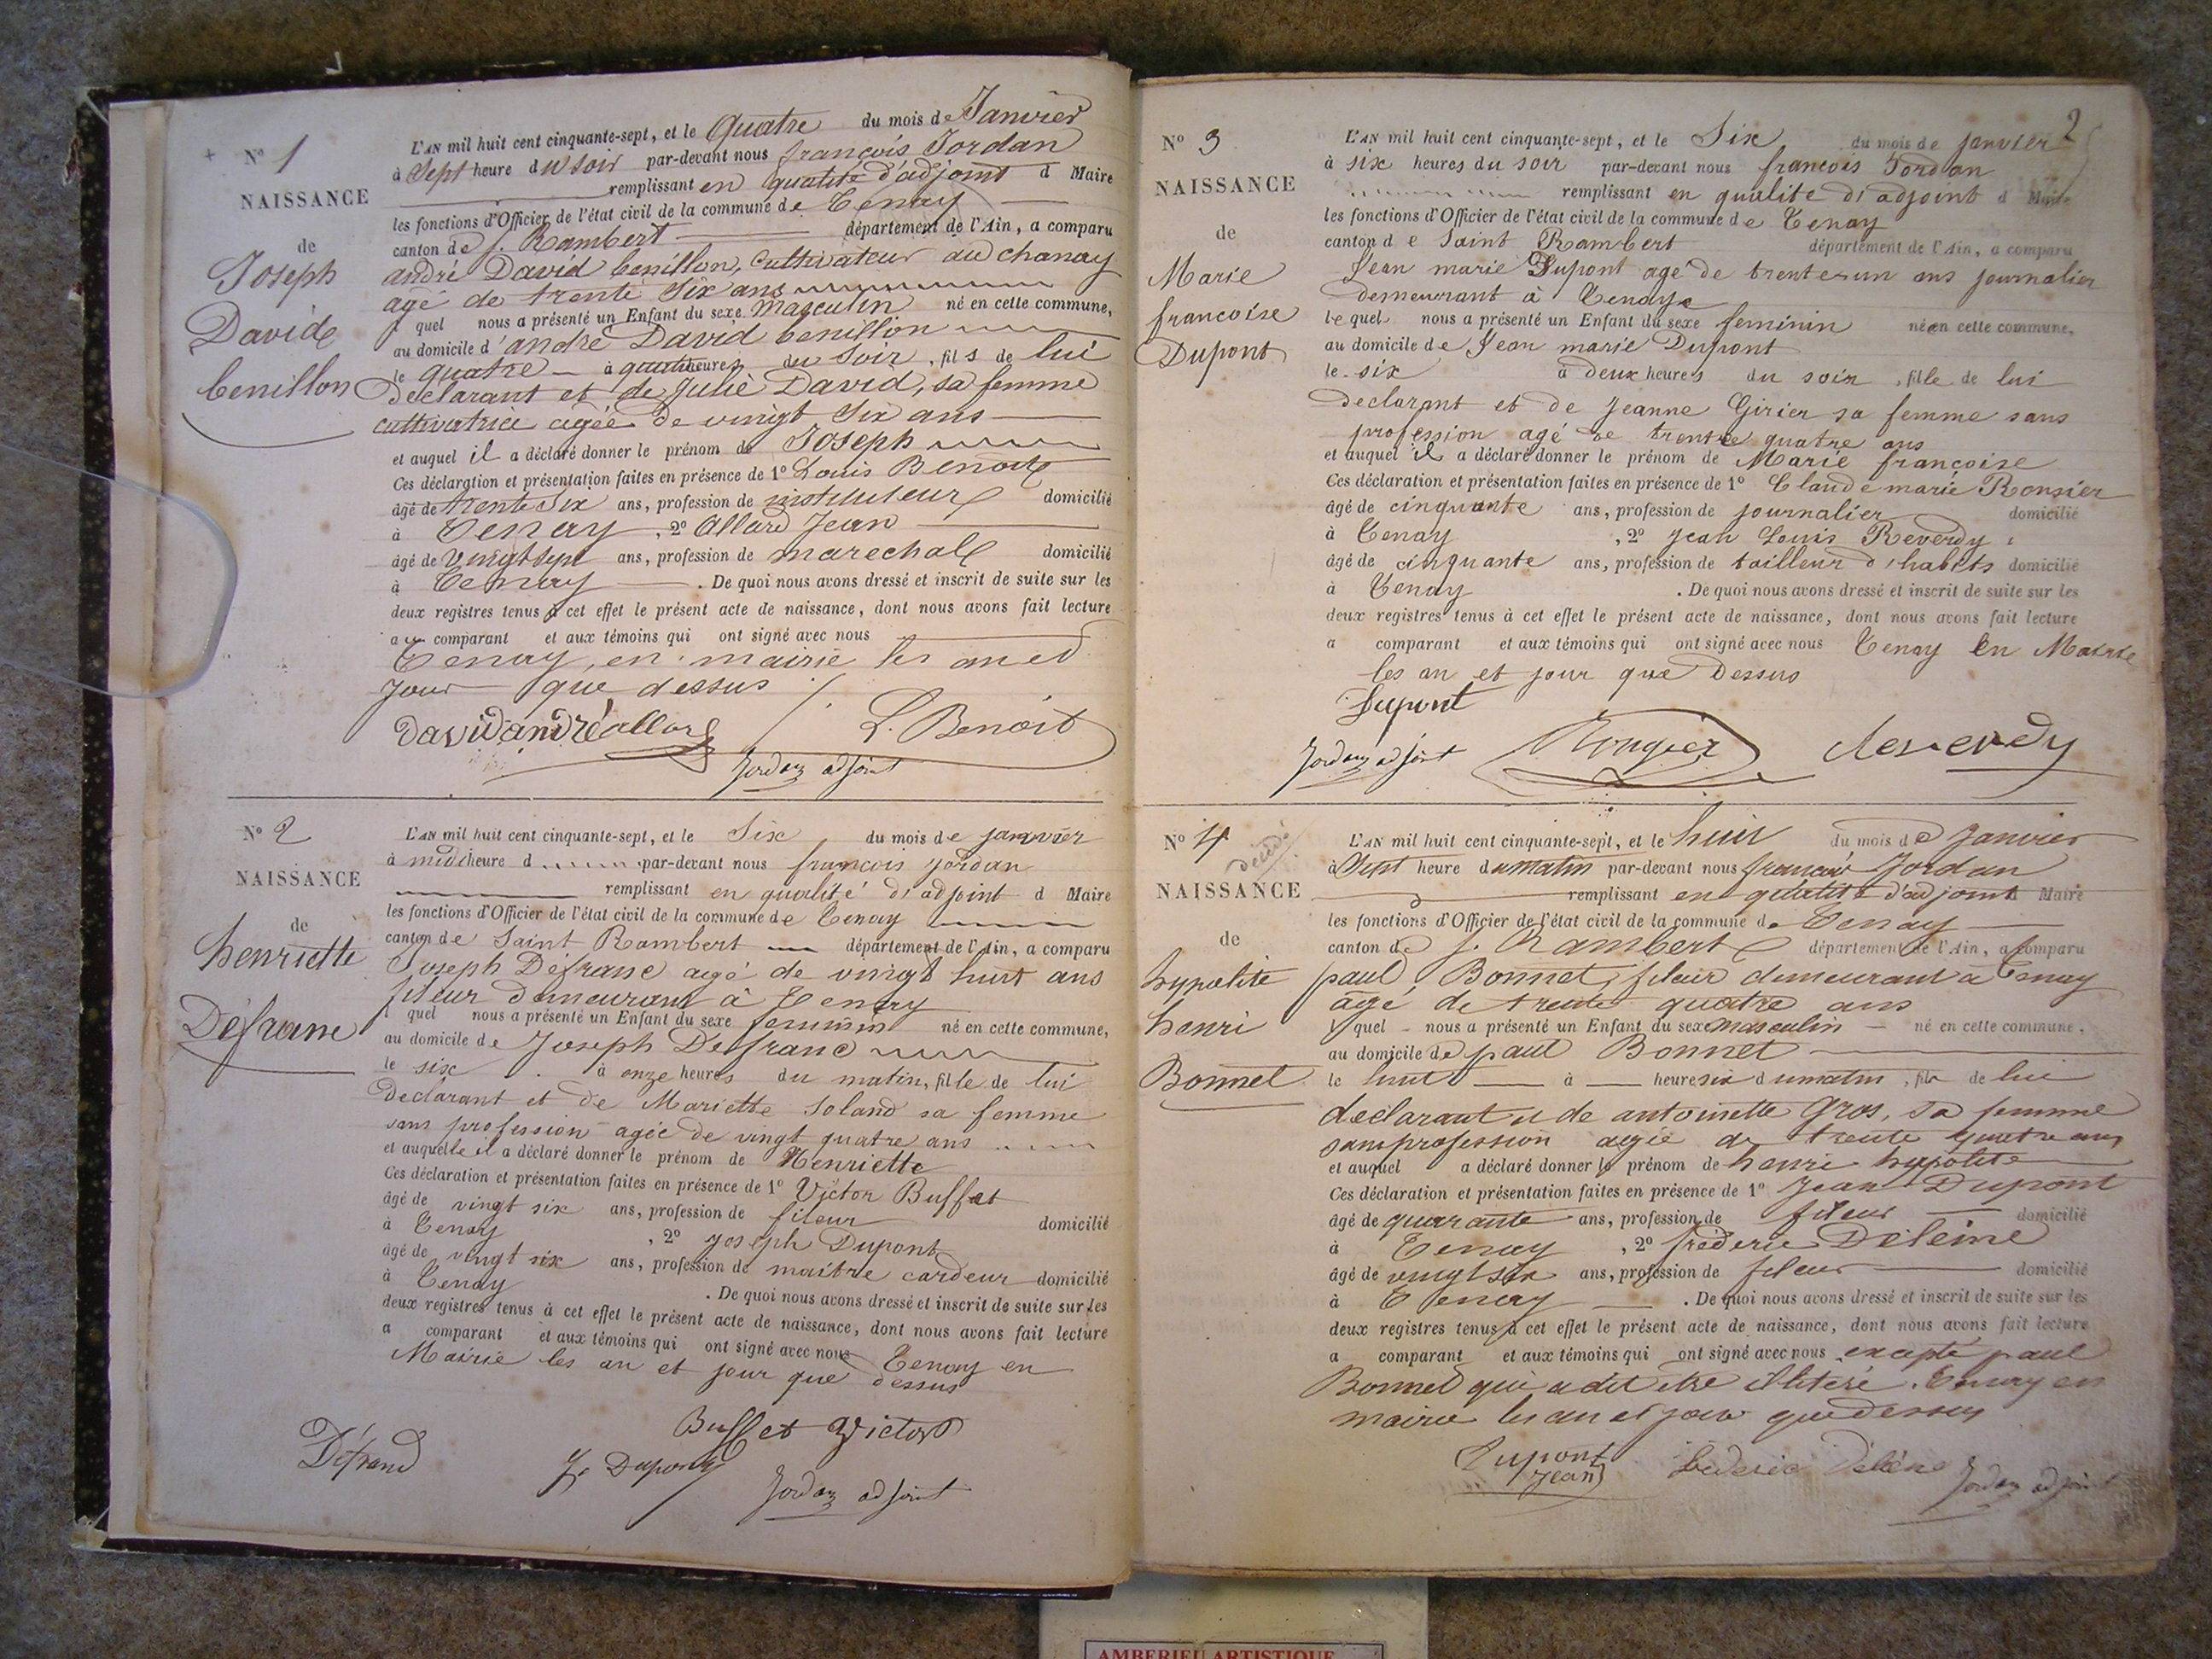 N° 1
NAISSANCE
de
Joseph
Davide
benillon
L'AN mil huit cent cinquante-sept, et le quatre du mois de Janvier
à Sept heure du soir par-devant nous françois Jordan
remplissant en qualité d'adjoint d Maire
les fonctions d'Officier de l'état civil de la commune de Tenay
canton de J. Rambert département de l'Ain, a comparu
andré David benillon, Cultivateur au chanay
agé de trente Six ans
quel nous a présenté un Enfant du sexe masculin né en cette commune,
au domicile d'andré David benillon
le quatre à quatre heures du Soir, fils de lui
Déclarant et de Julie David, sa femme
cultivatrice agée de vingt Six ans
et auquel il a déclaré donner le prénom de Joseph
Ces déclaration et présentation faites en présence de 1° Louis Benoit
âgé de trente Six ans, profession de instituteur domicilié
à Tenay, 2° Allard Jean
âgé de vingt sept ans, profession de marechal domicilié
à Tenay. De quoi nous avons dressé et inscrit de suite sur les
deux registres tenus à cet effet le présent acte de naissance, dont nous avons fait lecture
au comparant et aux témoins qui ont signé avec nous
Tenay, en mairie les an et
Jour que dessus
David andré allard L. Benoit
Jordan adjoint
N° 2
NAISSANCE
de
henriette
Défranc
L'AN mil huit cent cinquante-sept, et le Six du mois de janvier
à midi heure d par-devant nous francois jordan
remplissant en qualité d'adjoint d Maire
les fonctions d'Officier de l'état civil de la commune de Tenay
canton de Saint Rambert département de l'Ain, a comparu
Joseph Défranc agé de vingt huit ans
fileur demeurant à Tenay
l quel nous a présenté un Enfant du sexe feminin né en cette commune,
au domicile de Joseph Défranc
le six à onze heures du matin, fille de lui
Declarant et de Mariette Soland sa femme
sans profession agée de vingt quatre ans
et auquelle il a déclaré donner le prénom de Henriette
Ces déclaration et présentation faites en présence de 1° Victor Buffet
âgé de vingt six ans, profession de fileur domicilié
à Tenay, 2° Joseph Dupont
âgé de vingt six ans, profession de maitre cardeur domicilié
à Tenay. De quoi nous avons dressé et inscrit de suite sur les
deux registres tenus à cet effet le présent acte de naissance, dont nous avons fait lecture
a comparant et aux témoins qui ont signé avec nous Tenay en
Mairie les an et jour que dessus
Buffet Victor
Défranc J. Dupont
Jordan adjoint
2
N° 3
NAISSANCE
de
Marie
francoise
Dupont
L'AN mil huit cent cinquante-sept, et le Six du mois de janvier
à six heures du soir par-devant nous francois Jordan
remplissant en qualite d'adjoint d Maire
les fonctions d'Officier de l'état civil de la commune de Tenay
canton de Saint Rambert département de l'Ain, a comparu
Jean marie Dupont agé de trente un ans journalier
demeurant à Tenay
le quel nous a présenté un Enfant du sexe feminin né en cette commune,
au domicile de Jean marie Dupont
le six à deux heures du soir, fille de lui
declarant et de Jeanne Girier sa femme sans
profession agé de trente quatre ans
et auquel il a déclaré donner le prénom de Marie françoise
Ces déclaration et présentation faites en présence de 1° Claude marie
âgé de cinquante ans, profession de journalier domicilié
à Tenay, 2° Jean Louis Reverdy
âgé de cinquante ans, profession de tailleur d'habits domicilié
à Tenay. De quoi nous avons dressé et inscrit de suite sur les
deux registres tenus à cet effet le présent acte de naissance, dont nous avons fait lecture
a comparant et aux témoins qui ont signé avec nous Tenay en Mairie
les an et jour que Dessus
Dupont
Jordan adjoint Rougier Reverdy
N° 4
décédé
NAISSANCE
de
hypolite
henri
Bonnet
L'AN mil huit cent cinquante-sept, et le huit du mois de Janvier
à Sept heure du matin par-devant nous françois Jordan
remplissant en qualité d'adjoint Maire
les fonctions d'Officier de l'état civil de la commune de Tenay
canton de J. Rambert département de l'Ain, a comparu
paul Bonnet, fileur demeurant a Tenay
agé de trente quatre ans
l quel nous a présenté un Enfant du sexe masculin né en cette commune,
au domicile de paul Bonnet
le huit à heure six du matin, fils de lui
déclarant et de antoinette Gros, sa femme
sans profession agée de trente quatre ans
et auquel a déclaré donner le prénom de henri hypolite
Ces déclaration et présentation faites en présence de 1° Jean Dupont
âgé de quarante ans, profession de fileur domicilié
à Tenay, 2° fréderic Déléine
âgé de vingt six ans, profession de fileur domicilié
à Tenay. De quoi nous avons dressé et inscrit de suite sur les
deux registres tenus à cet effet le présent acte de naissance, dont nous avons fait lecture
a comparant et aux témoins qui ont signé avec nous excepté paul
Bonnet qui a dit etre illiteré. Tenay en
mairie les an et jour que dessus
Dupont
Jean
fréderic Jordan adjoint
AMBERIEU ARTISTIQUE